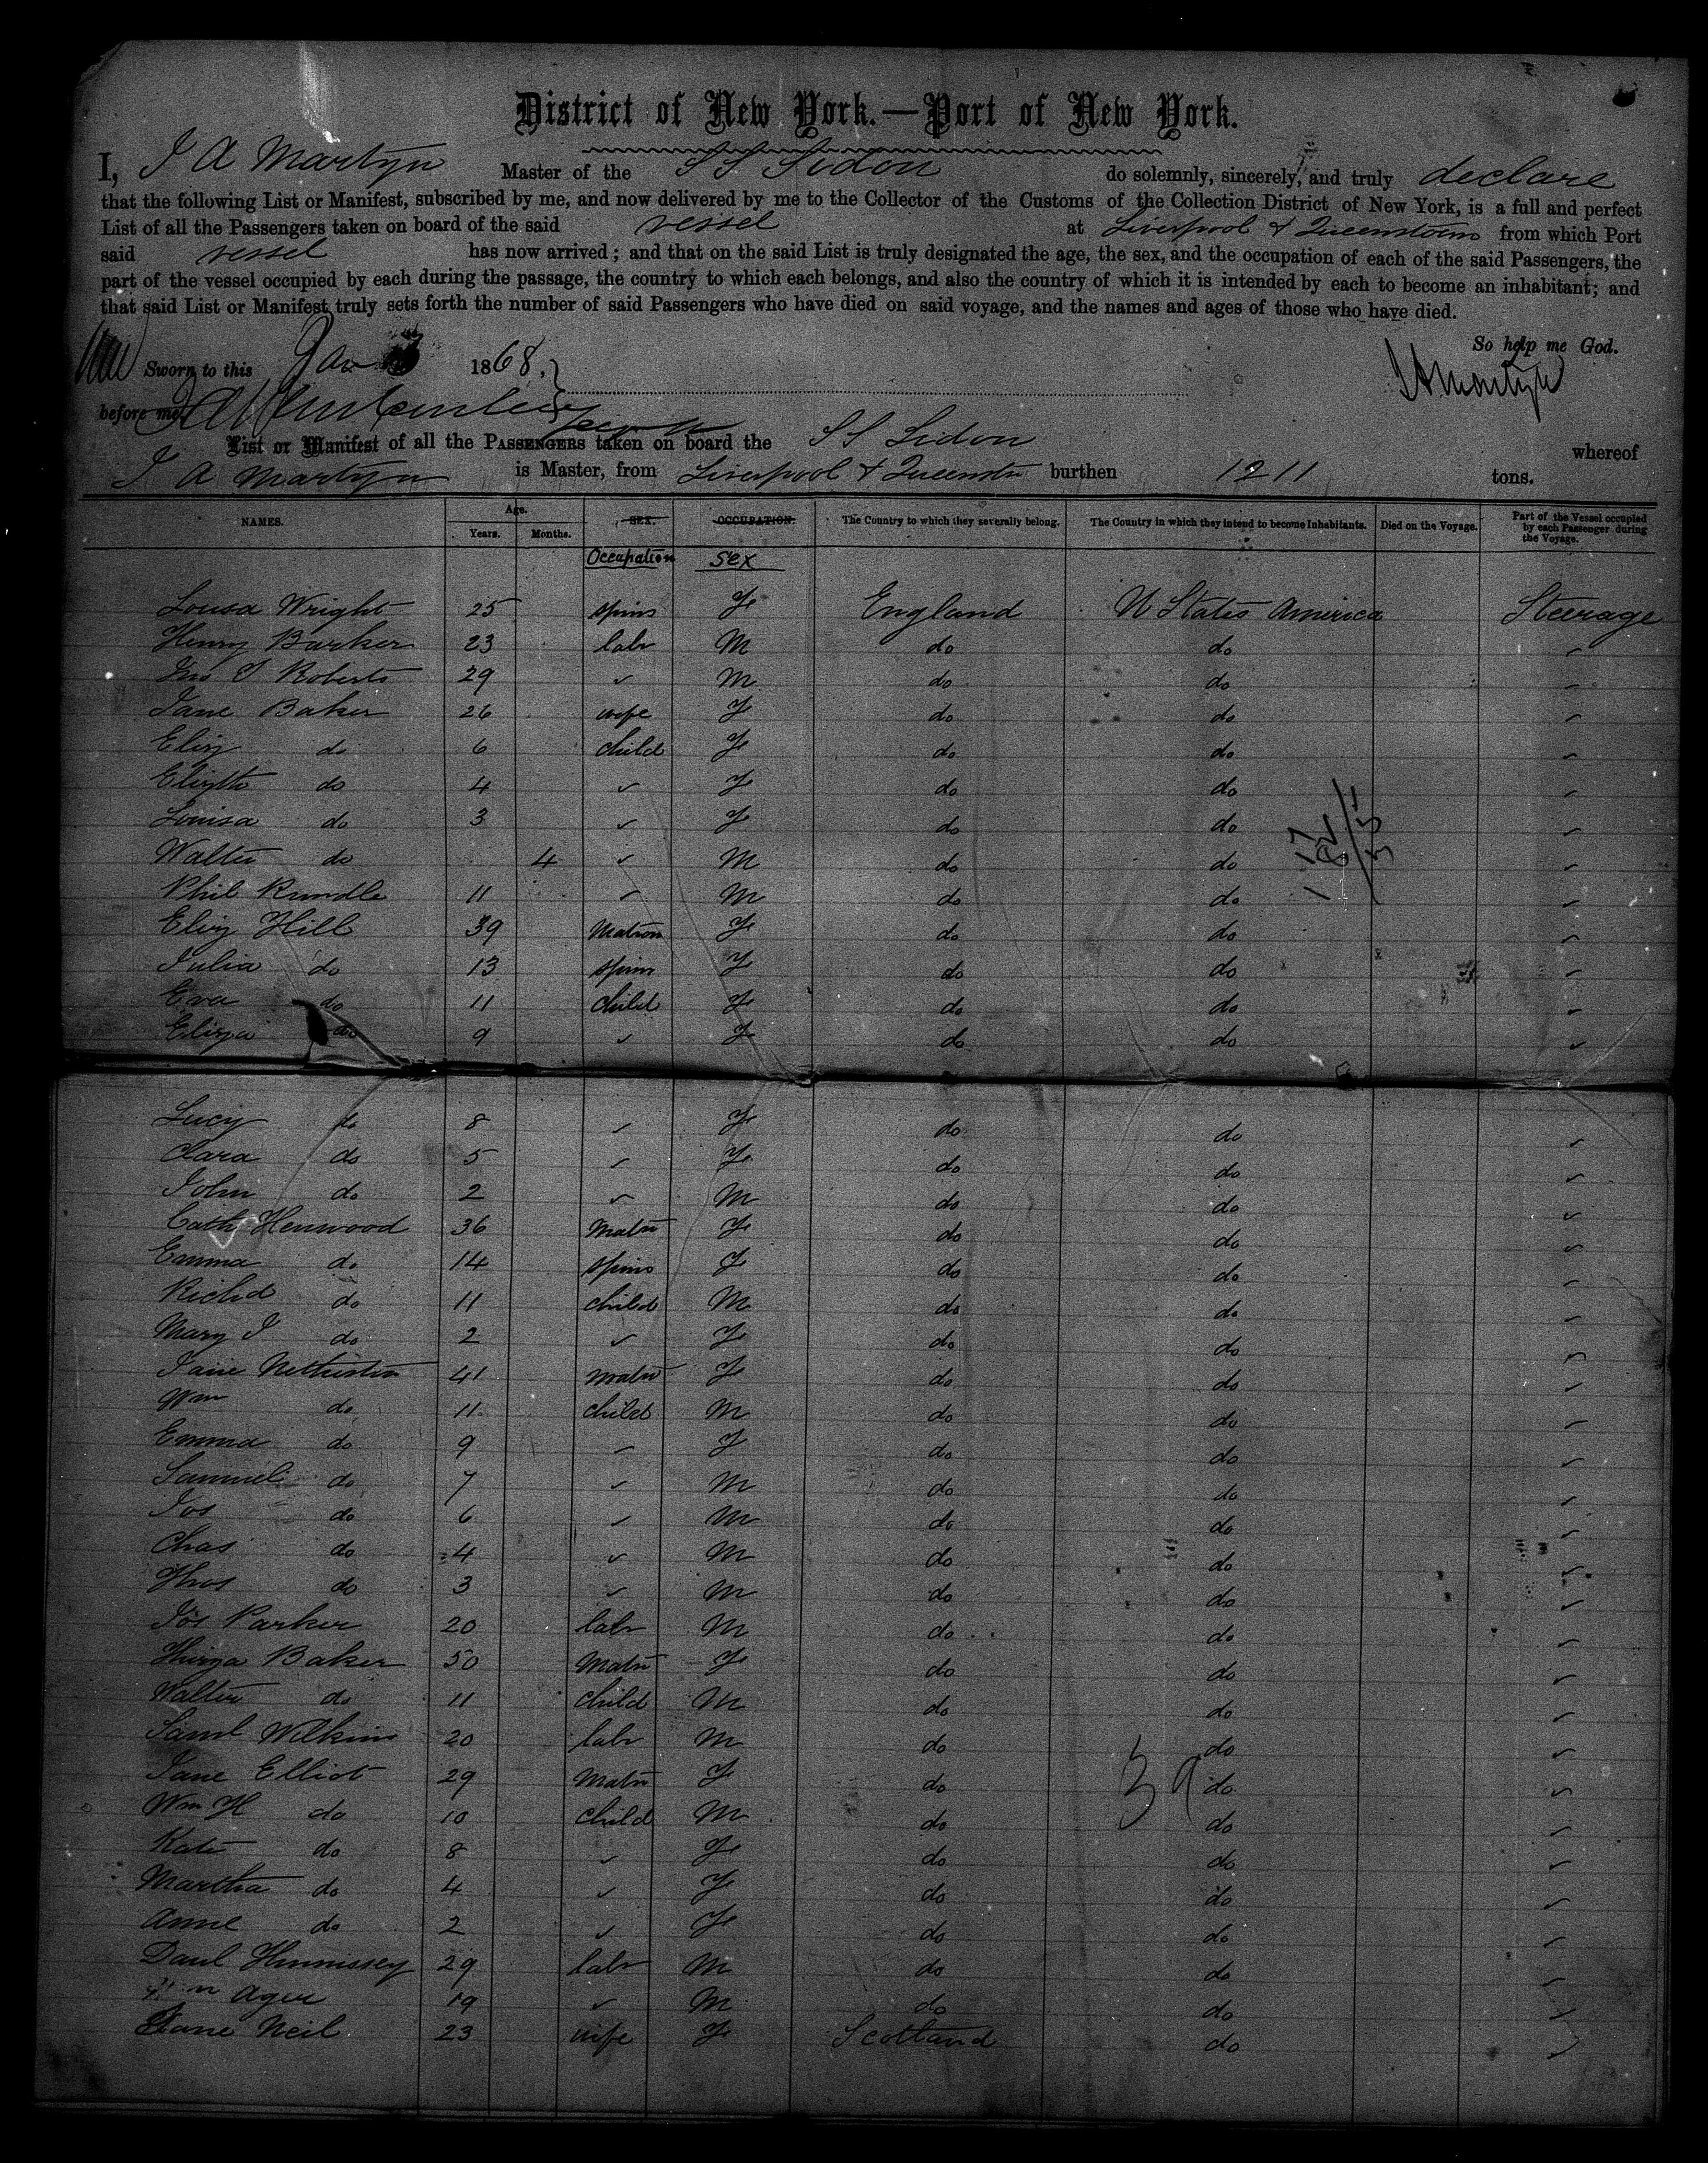 District of New York.—Port of New York.
I, J A Martyn Master of the SS Sidon do solemnly, sincerely, and truly declare
that the following List or Manifest, subscribed by me, and now delivered by me to the Collector of the Customs of the Collection District of New York, is a full and perfect
List of all the Passengers taken on board of the said vessel at Liverpool & Queenstown from which Port
said vessel has now arrived; and that on the said List is truly designated the age, the sex, and the occupation of each of the said Passengers, the
part of the vessel occupied by each during the passage, the country to which each belongs, and also the country of which it is intended by each to become an inhabitant; and
that said List or Manifest truly sets forth the number of said Passengers who have died on said voyage, and the names and ages of those who have died.
So help me God.
Sworn to this Jan 3 1868.
J A Martyn
before me
List or Manifest of all the PASSENGERS taken on board the SS Sidon whereof
J A Martyn is Master, from Liverpool & Queenstn burthen 1211 tons.
NAMES. Age. Years. Months. SEX. OCCUPATION. The Country to which they severally belong. The Country in which they intend to become Inhabitants. Died on the Voyage. Part of the Vessel occupied by each Passenger during the Voyage.
Occupation Sex
Lousa Wright 25 spins Fe England U States America Steerage
Henry Barker 23 labr M do do
Jno S Roberts 29 M do do
Jane Baker 26 wife Fe do do
Eliz do 6 child Fe do do
Elizth do 4 Fe do do
Louisa do 3 Fe do do
Walter do 4 M do do
Phil Rundle 11 M do do
Eliz Hill 39 Matron Fe do do
Julia do 13 spins Fe do do
Eva do 11 child Fe do do
Eliza do 9 Fe do do
Lucy do 8 Fe do do
Clara do 5 Fe do do
John do 2 M do do
Cath Henwood 36 Matrn Fe do do
Emma do 14 spins Fe do do
Richd do 11 child M do do
Mary J do 2 Fe do do
Jane 41 matrn Fe do do
Wm do 11 child M do do
Emma do 9 Fe do do
Samuel do 7 M do do
Jos do 6 M do do
Chas do 4 M do do
Thos do 3 M do do
Jos Parker 20 labr M do do
Thirza Baker 50 Matrn Fe do do
Walter do 11 child M do do
Saml Wilkins 20 labr M do do
Jane Elliot 29 Matrn Fe do do
39
Wm H do 10 child M do do
Kate do 8 Fe do do
Martha do 4 Fe do do
Anne do 2 Fe do do
Danl Hennissey 29 labr M do do
Ager 19 M do do
Jane Neil 23 wife Fe Scotland do